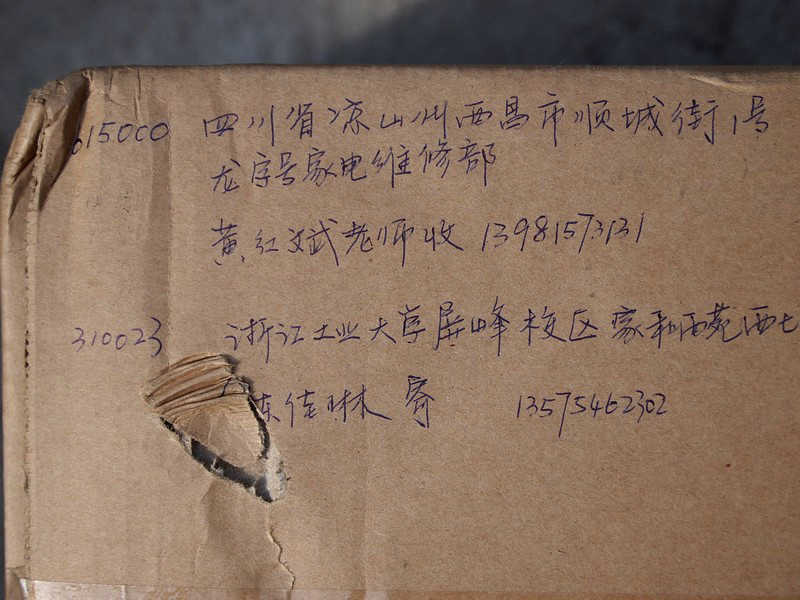 615000 四川省凉山州西昌市顺城街1号
龙字号家电维修部
黄红斌老师收 13981573131
310023 浙江工业大学屏峰校区家和西苑西七
陈佳琳寄 13575462302